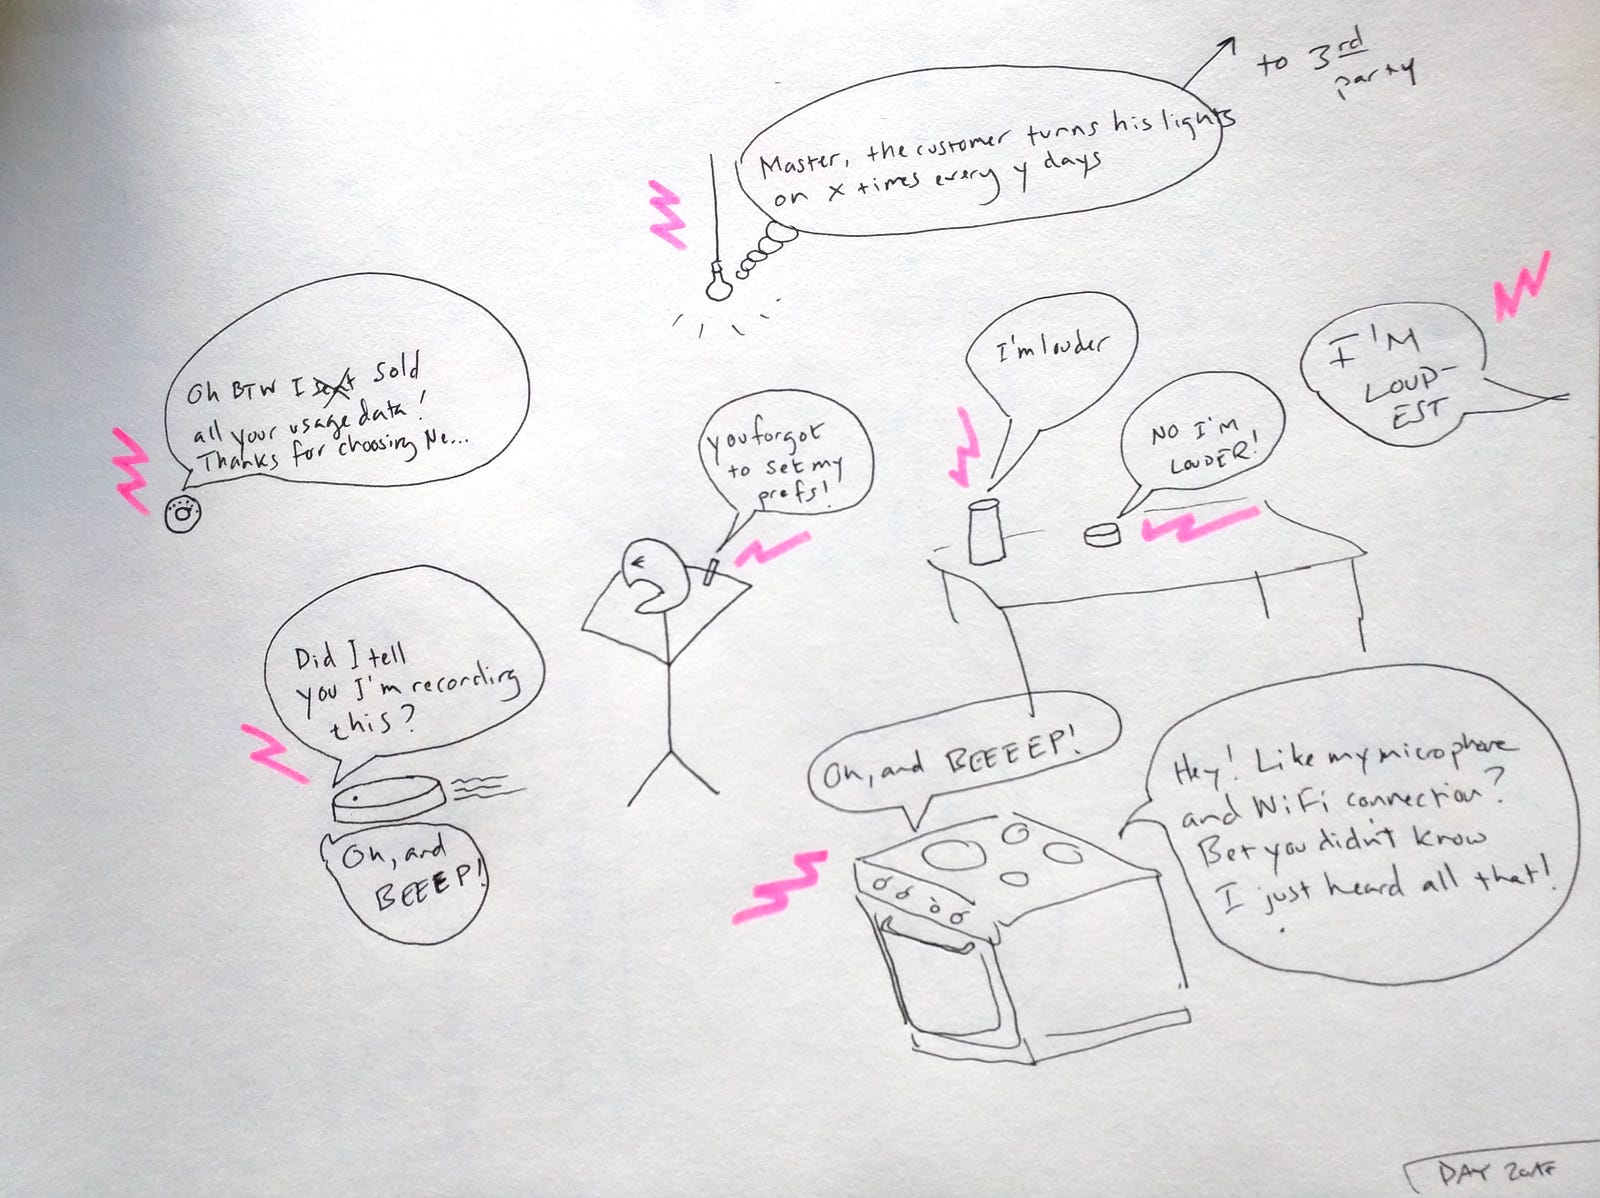 to 3rd
party
Master, the customer turns his lights
on x times every y days
Oh BTW I sent sold
all your usage data!
Thanks for choosing Ne...
you forgot
to set my
prefs!
I'm louder
NO I'M
LOUDER!
I'M
LOUD-
EST
Did I tell
you I'm recording
this?
Oh, and
BEEEP!
Oh, and BEEEEP!
Hey! Like my microphone
and WiFi connection?
Bet you didn't know
I just heard all that!
DAY